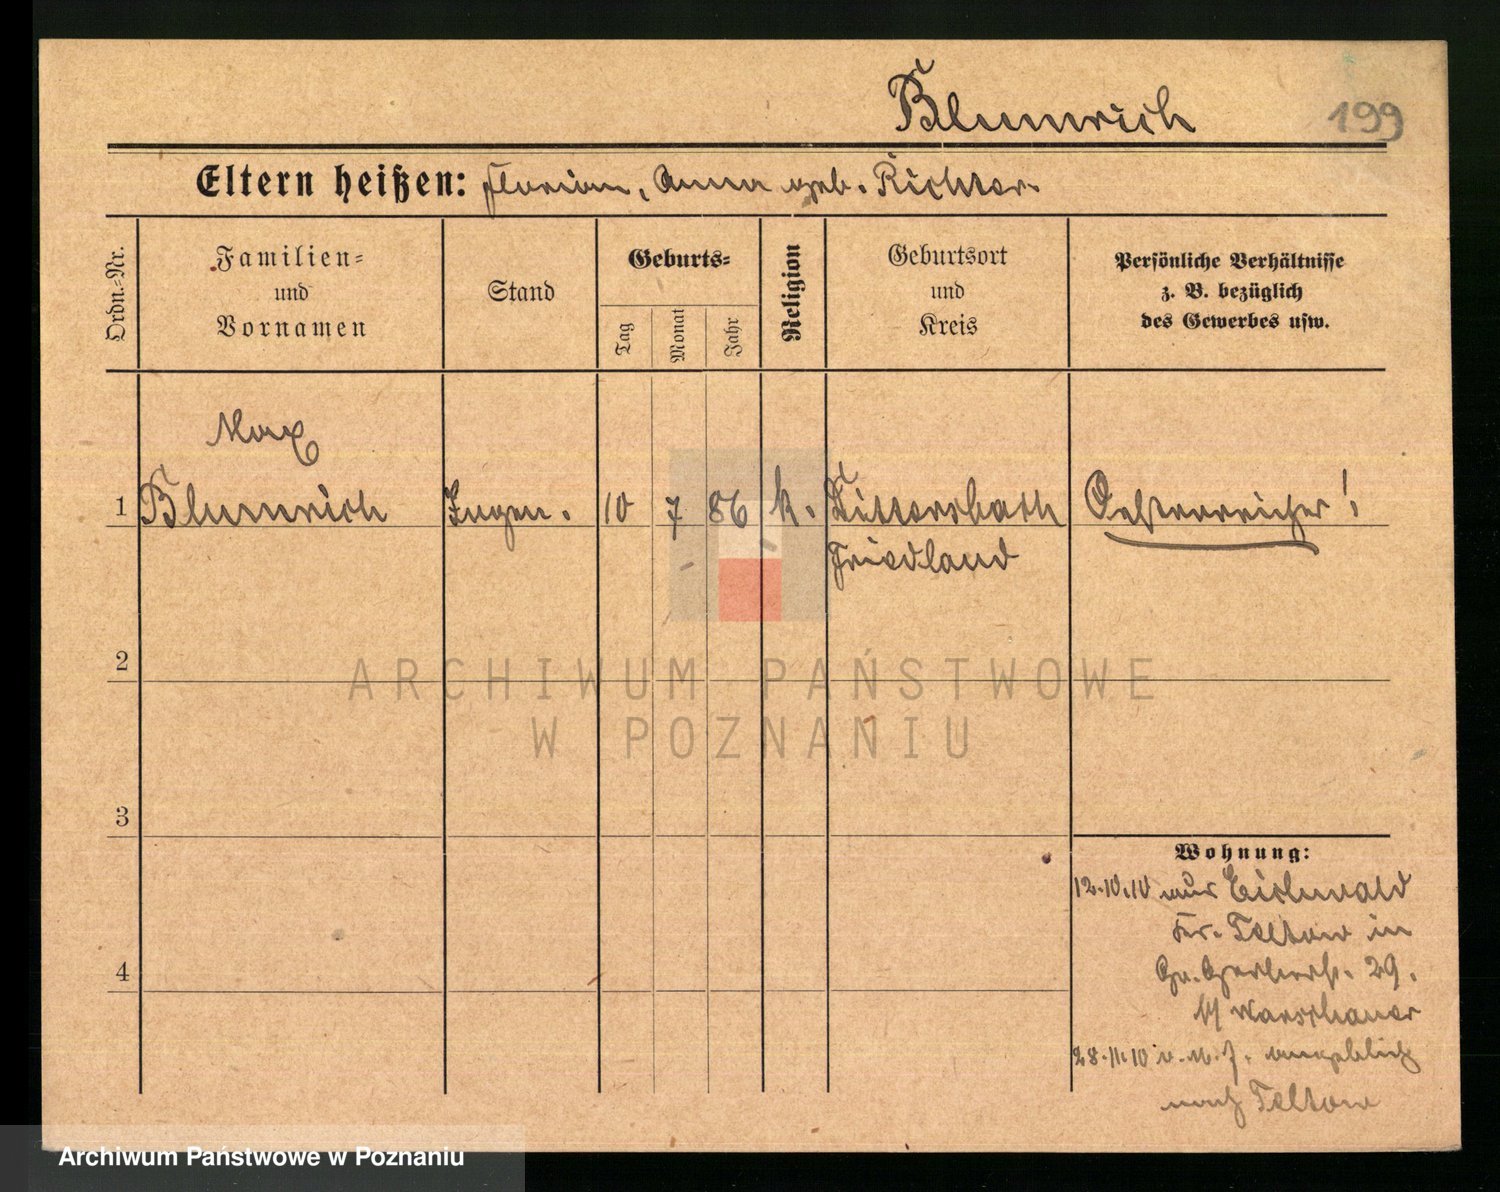 Blumrich
199
Eltern heißen: Florian, Anna geb. Richter.
Ordn.-Nr.
Familien-
und
Vornamen
Stand
Geburts-
Tag
Monat
Jahr
Religion
Geburtsort
und
Kreis
Persönliche Verhältnisse
z. B. bezüglich
des Gewerbes usw.
Max
1 Blumrich Ingen. 10 7 86 k. Dittersbach Oesterreicher!
Friedland
2
ARCHIWUM PAŃSTWOWE
W POZNANIU
3
Wohnung:
12.10.10 aus Eichwald
Kr. Teltow in
Gr. Gerberstr. 29.
b/ Warschauer
28.11.10 v. u. Z. angeblich
nach Teltow
4
Archiwum Państwowe w Poznaniu